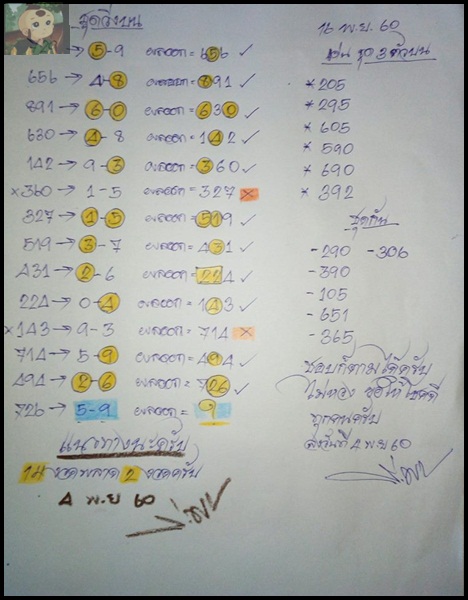 ชุดวิ่งบน
5-9 ผลออก = 656 ✓
656 → 4-8 ผลออก = 891 ✓
891 → 6-0 ผลออก = 630 ✓
630 → 4-8 ผลออก = 142 ✓
142 → 9-3 ผลออก = 360 ✓
×360 → 1-5 ผลออก = 327 ×
327 → 1-5 ผลออก = 519 ✓
519 → 3-7 ผลออก = 431 ✓
431 → 2-6 ผลออก = 224 ✓
224 → 0-4 ผลออก = 143 ✓
×143 → 9-3 ผลออก = 714 ×
714 → 5-9 ผลออก = 494 ✓
494 → 2-6 ผลออก = 726 ✓
726 → 5-9 ผลออก = 9
แนวทางนะครับ
14 งวดพลาด 2 งวดครับ
4 พ.ย 60
16 พ.ย. 60
เด่น ชุด 3 ตัวบน
* 205
* 295
* 605
* 590
* 690
* 392
ชุดกัน
-290 -306
-390
-105
-651
-365
ชอบก็ตามได้ครับ
ไม่หวง ขอให้โชคดี
ทุกคนครับ
ลงวันที่ 4 พ.ย 60